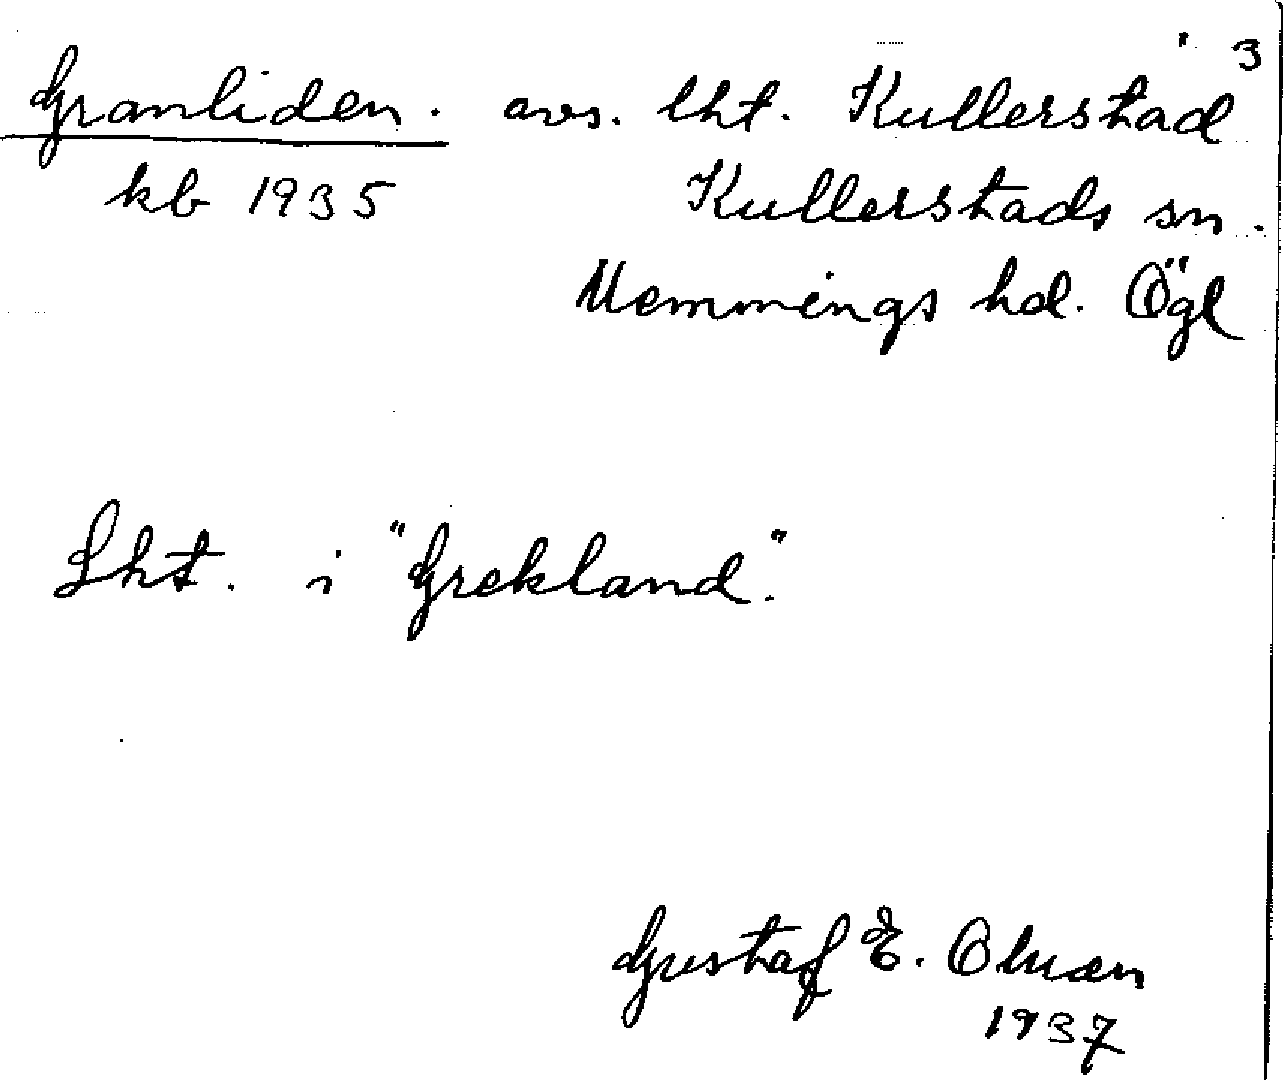 3
Granliden. avs. lht. Kullerstad
kb 1935 Kullerstads sn.
Memmings hd. Ögl
Lht. i "Grekland".
Gustaf E.
1937